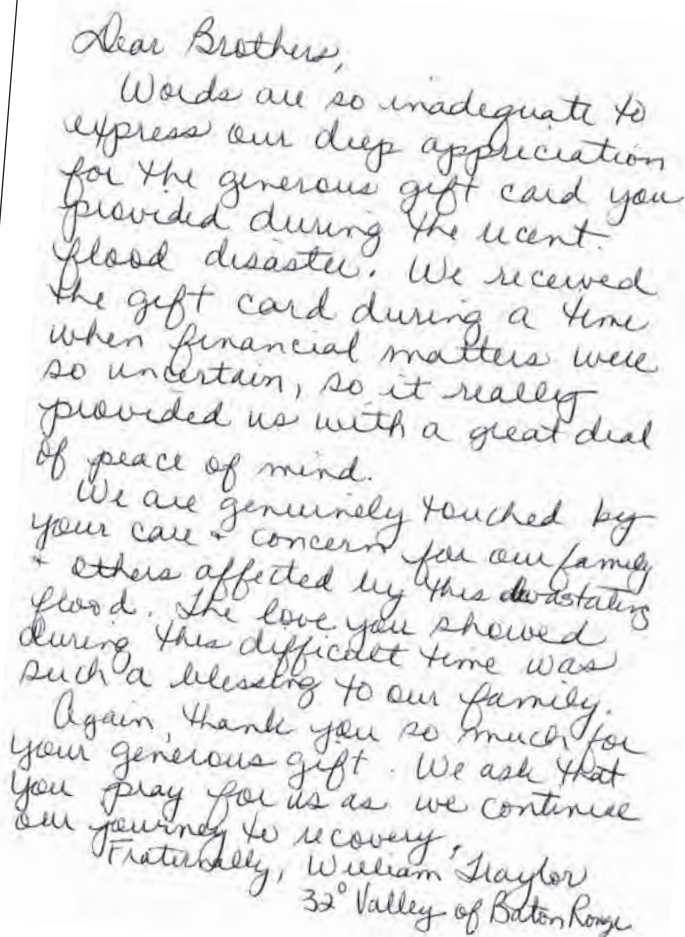 Dear Brothers,
Words are so inadequate to
express our deep appreciation
for the generous gift card you
provided during the recent
flood disaster. We received
the gift card during a time
when financial matters were
so uncertain, so it really
provided us with a great deal
of peace of mind.
We are genuinely touched by
your care + concern for our family
+ others affected by this devastating
flood. The love you showed
during this difficult time was
such a blessing to our family.
Again, thank you so much for
your generous gift. We ask that
you pray for us as we continue
our journey to recovery.
Fraternally, William Traylor
32° Valley of Baton Rouge